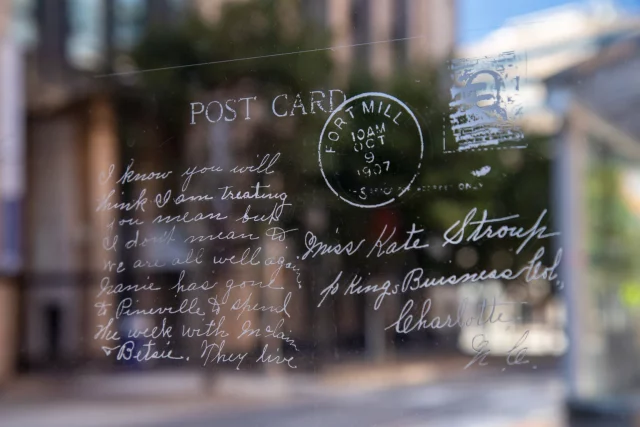 POST CARD
FORT MILL
10AM
OCT
9
1907
S
ONLY
I know you will
think I am treating
you mean but
I don't mean to
we are all well again
Janie has gone
to Pineville to spend
the week with
& Betsie. They live
Miss Kate Stroup
Kings Buisness Col,
Charlotte
N. C.